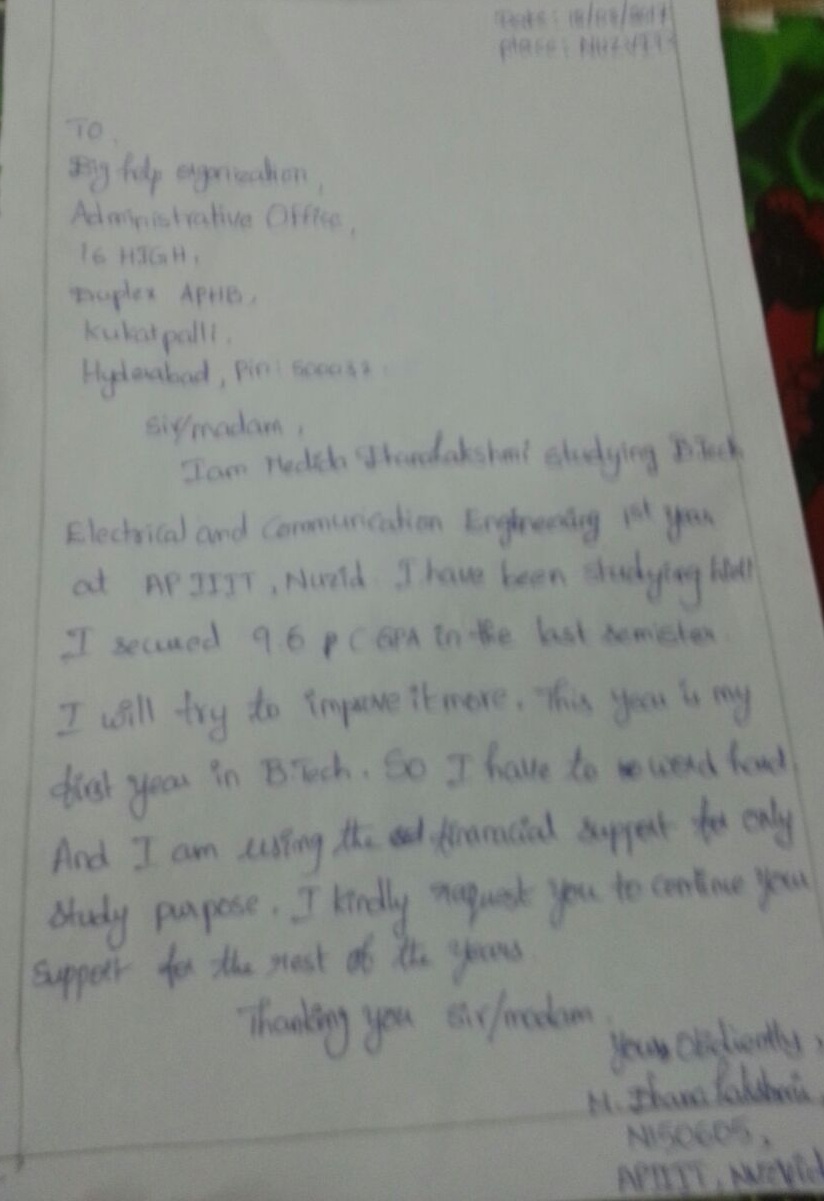 Date: 18/08/2017
Place: Nuzvid
TO,
Big help organization,
Administrative Office,
16 HIGH,
Duplex APHB,
Kukatpalli,
Hyderabad, Pin:
Sir/madam,
I am Dhanalakshmi studying B.Tech
Electrical and Communication Engineering 1st year
at AP IIIT, Nuzid. I have been studying Well
I secured 9.6 CGPA in the last semister.
I will try to improve it more. This year is my
first year in B.Tech. So I have to hard.
And I am using the financial support for only
study purpose. I kindly request you to contine your
support for the rest of the years.
Thanking you sir/madam.
Yours Obidiently,
M. Dhana Lakshmi,
N150605,
APIIIT, Nuzvid